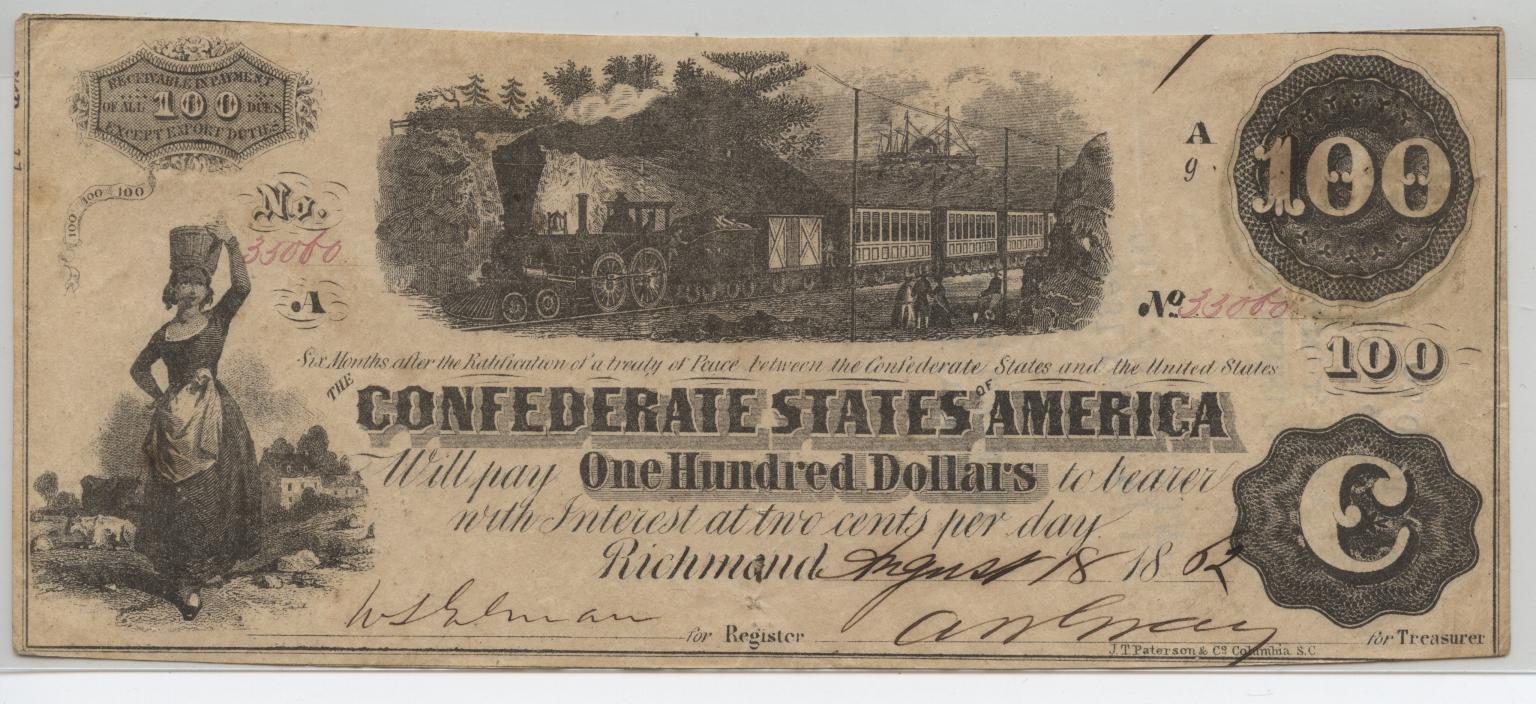 RECEIVABLE IN PAYMENT
OF ALL 100 DUES
EXCEPT EXPORT DUTIES
100 100 100
No.
33060
A
A
9.
100
No 33060
100
Six Months after the Ratification of a treaty of Peace between the Confederate States and the United States
THE CONFEDERATE STATES OF AMERICA
Will pay One Hundred Dollars to bearer
with Interest at two cents per day.
Richmond August 18 1862
C
for Register
for Treasurer
J.T. Paterson & Co Columbia S.C.